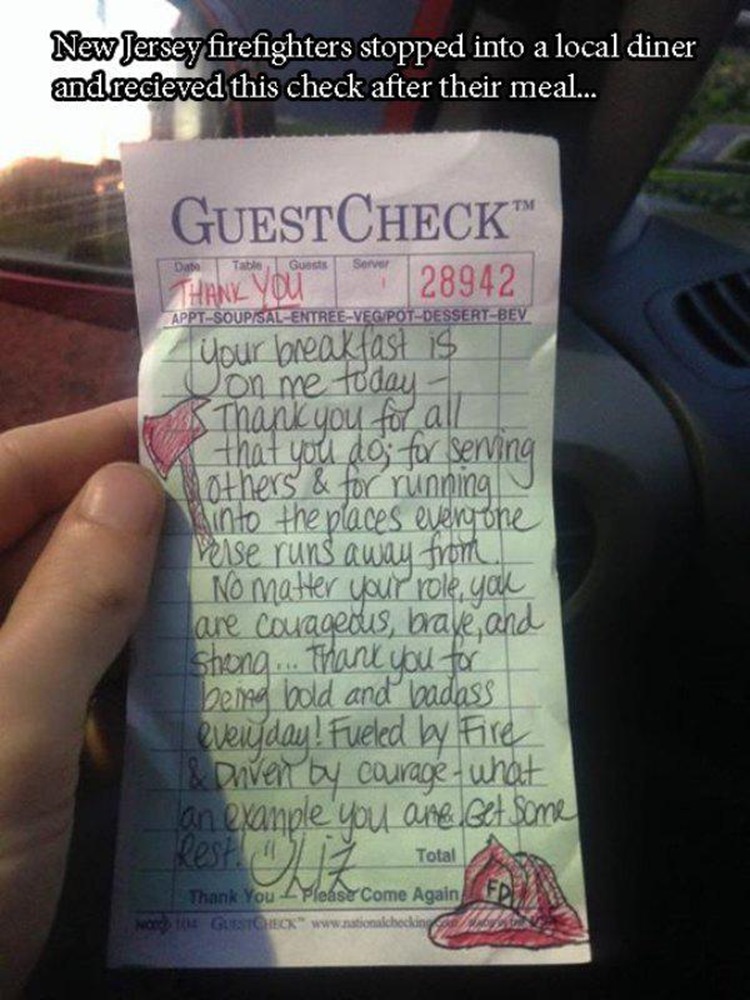 New Jersey firefighters stopped into a local diner
and recieved this check after their meal...
GUESTCHECK™
Date Table Guests Server
THANK YOU 28942
APPT-SOUP/SAL-ENTREE-VEG/POT-DESSERT-BEV
your breakfast is
on me today -
Thank you for all
that you do; for serving
others & for running
into the places everyone
else runs away from.
No matter your role, you
are courageous, brave, and
strong... Thank you for
being bold and badass
everyday! Fueled by Fire
& Driven by courage - what
an example you are. Get some
Rest! Liz
Total
Thank You - Please Come Again
FD
GUESTCHECK™ www.nationalchecking